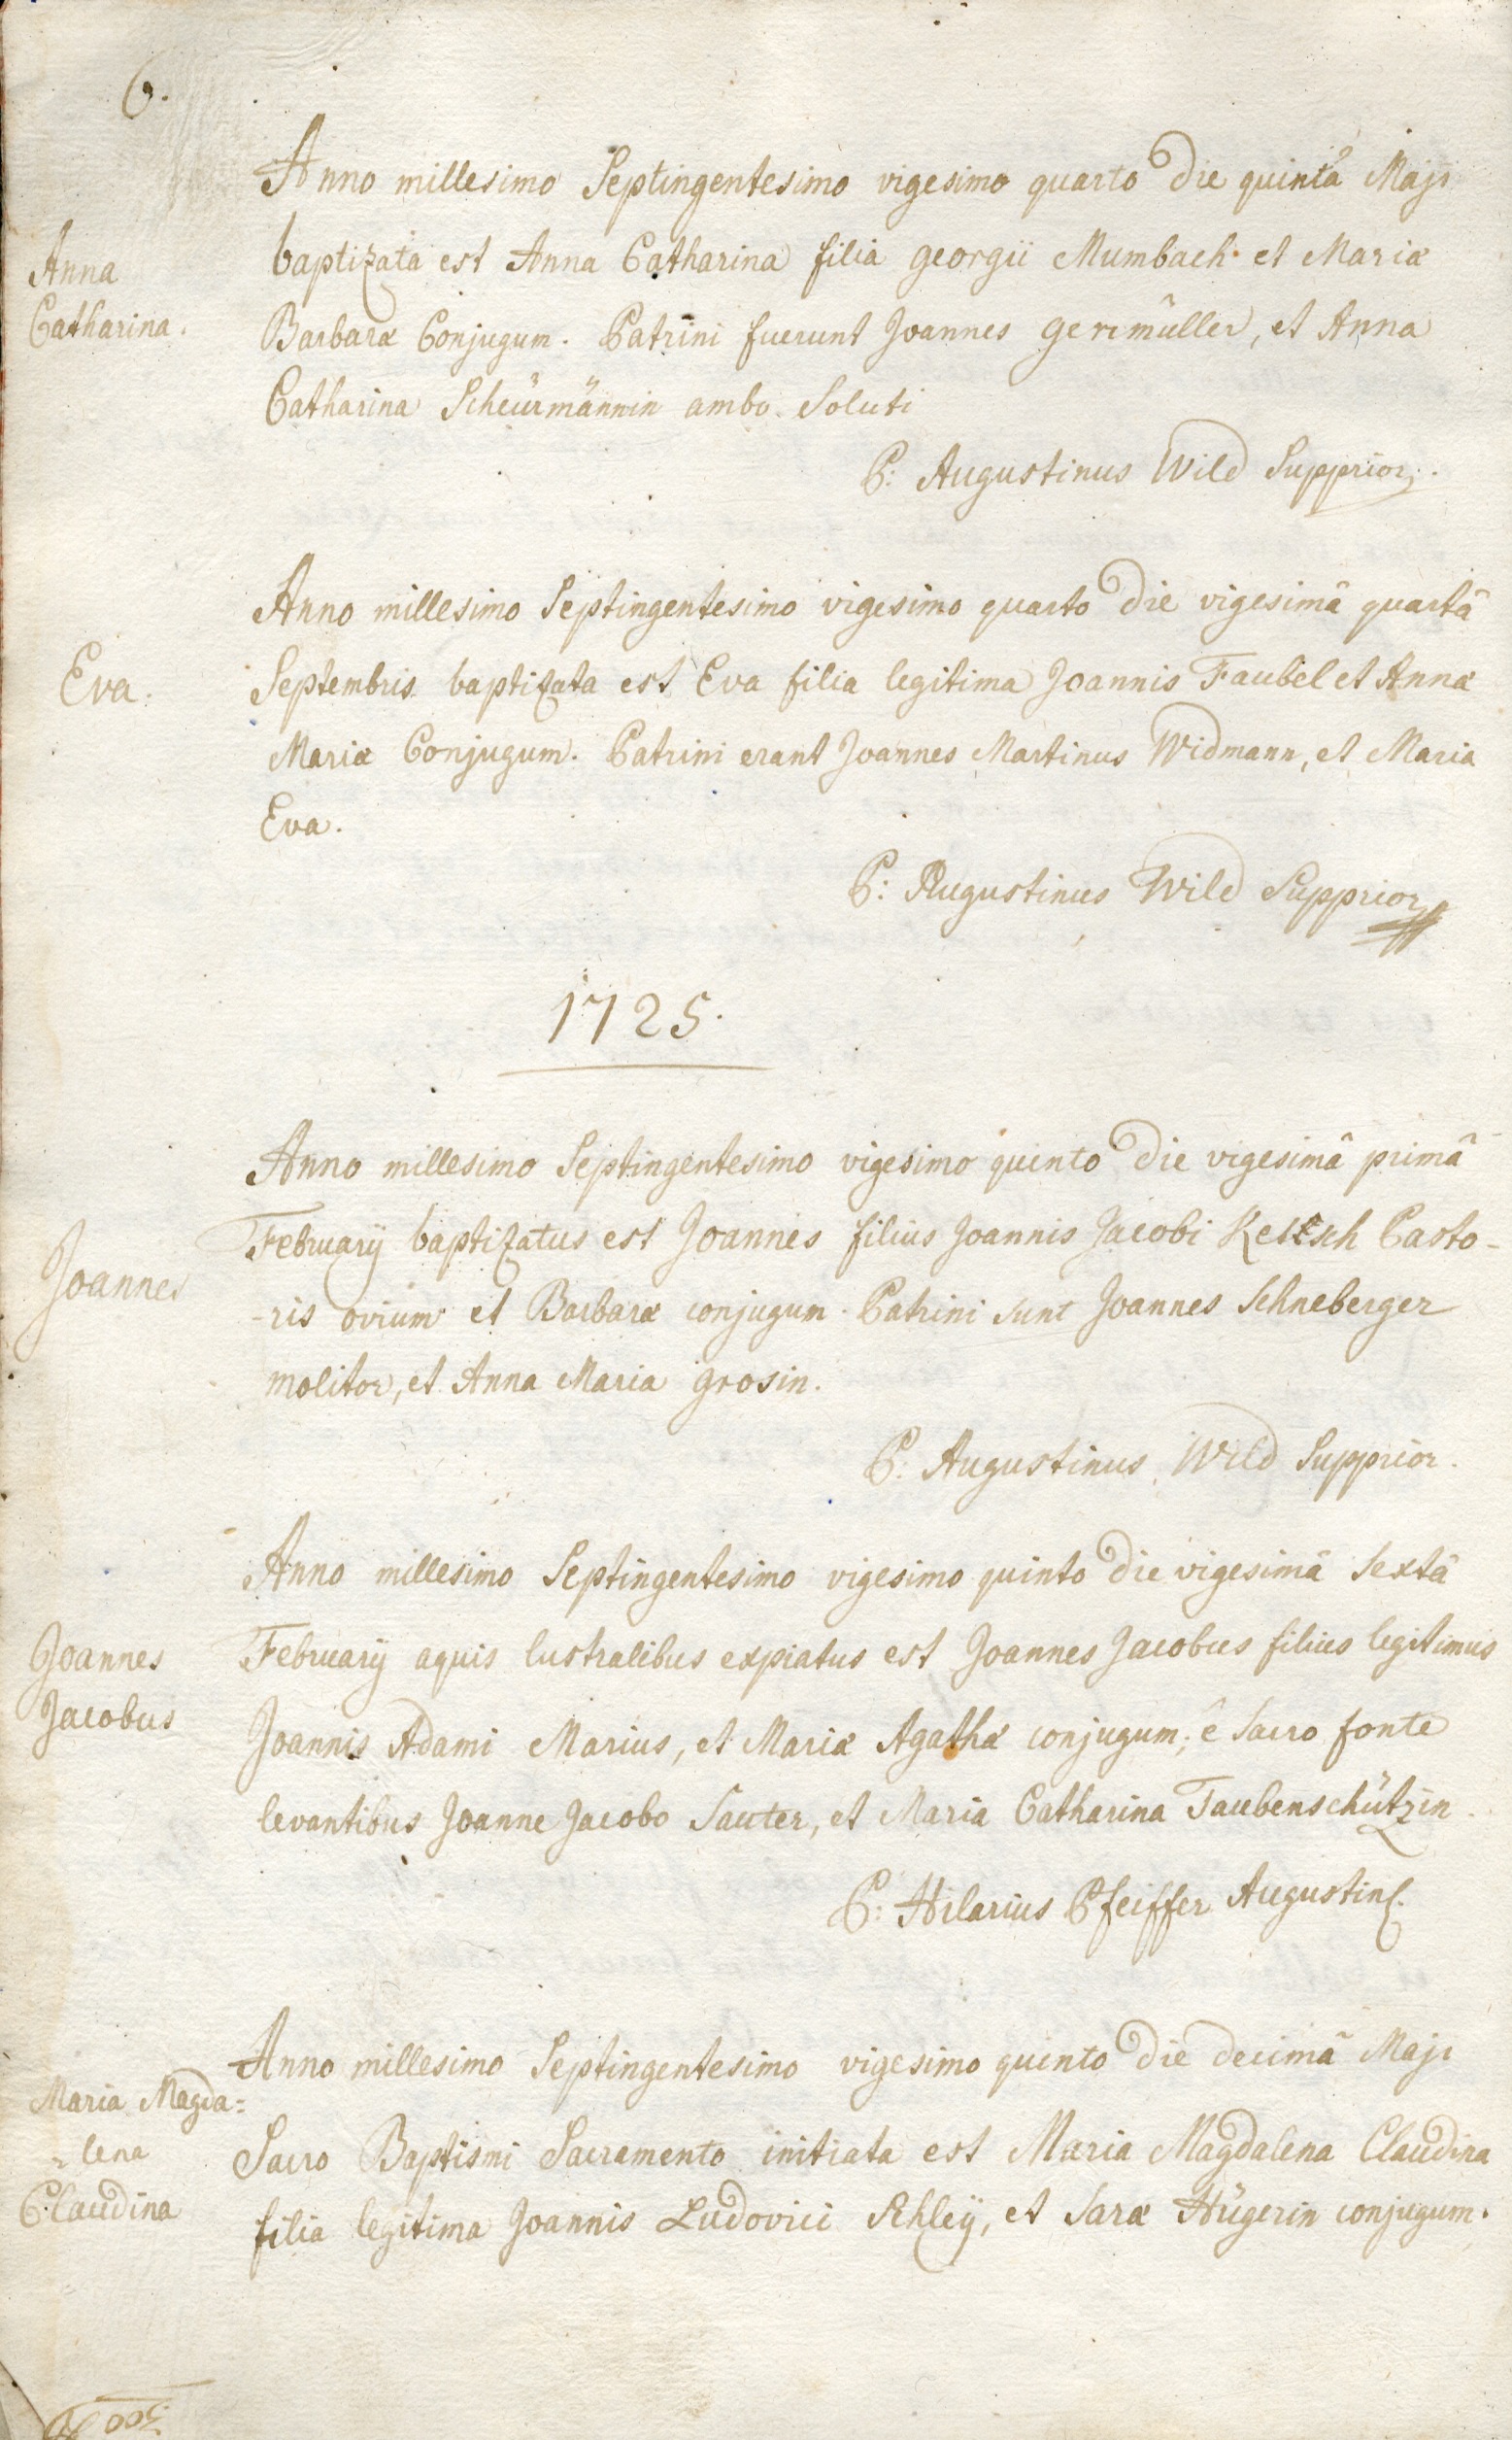 6.
Anno millesimo Septingentesimo vigesimo quarto die quintâ Maji
Anna
Catharina.
baptizata est Anna Catharina filia georgii Mumbach et Mariæ
Barbaræ Conjugum. Patrini fuerunt Joannes germüller, et Anna
Catharina Scheürmännin ambo Soluti
P: Augustinus Wild Supprior.
Anno millesimo Septingentesimo vigesimo quarto die vigesimâ quartâ
Eva.
Septembris baptizata est Eva filia legitima Joannis Faubel et Annæ
Mariæ Conjugum. Patrini erant Joannes Martinus Widmann, et Maria
Eva.
P: Augustinus Wild Supprior
1725.
Anno millesimo Septingentesimo vigesimo quinto die vigesimâ primâ
Joannes
Februarÿ baptizatus est Joannes filius Joannis Jacobi Pasto-
-ris ovium et Barbaræ conjugum. Patrini sunt Joannes Schneberger
molitor, et Anna Maria grosin.
P: Augustinus Wild Supprior.
Anno millesimo Septingentesimo vigesimo quinto die vigesimâ Sextâ
Joannes
Jacobus
Februarÿ aquis lustralibus expiatus est Joannes Jacobus filius legitimus
Joannis Adami Marius, et Mariæ Agathæ conjugum; ê sacro fonte
levantibus Joanne Jacobo Sauter, et Maria Catharina Taubenschützin.
P: Hilarius Pfeiffer Augustin
Anno millesimo Septingentesimo vigesimo quinto die decimâ Maji
Maria Magda=
=lena
Claudina
Sacro Baptismi Sacramento initiata est Maria Magdalena Claudina
filia legitima Joannis Ludovici Schleÿ, et Saræ Hügerin conjugum.